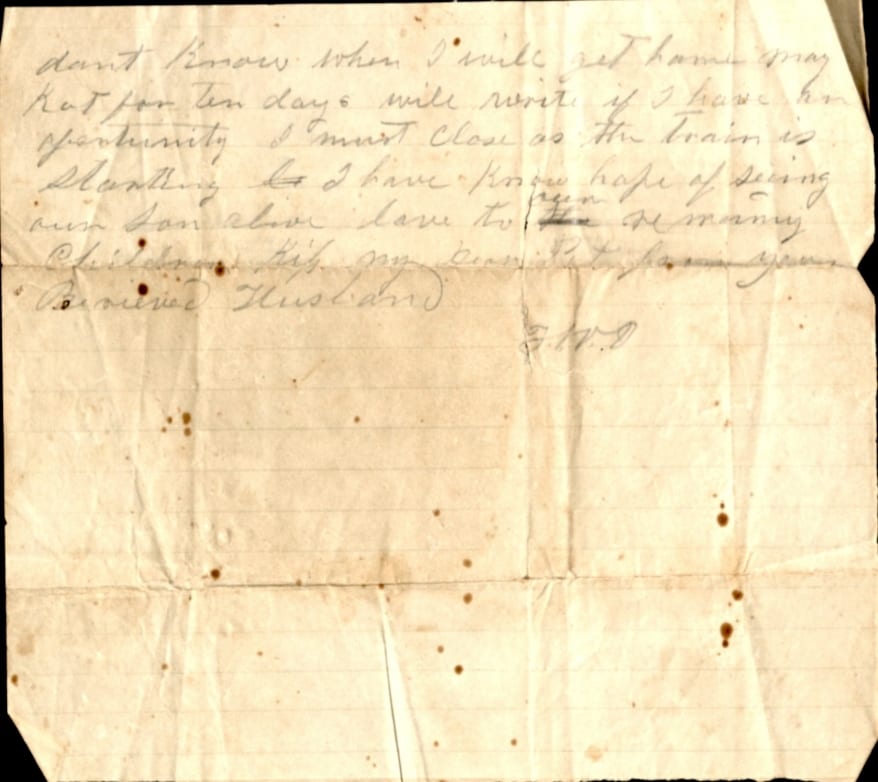 dant Know when I will get home may
Not for ten days will write if I have an
opertunity I must Close as the train is
Starting I have Know hope of seeing
our Son alive love to our remaining
Children Kiss my Dear Pet from your
Berieved Husband
F.W.D